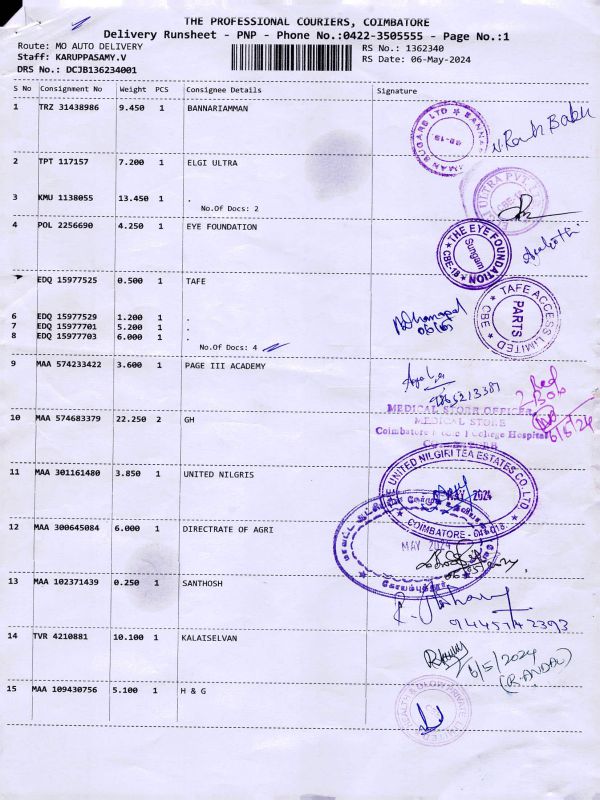 THE PROFESSIONAL COURIERS, COIMBATORE
Delivery Runsheet - PNP - Phone No.:0422-3505555 - Page No.:1
Route: MO AUTO DELIVERY RS No.: 1362340
Staff: KARUPPASAMY.V RS Date: 06-May-2024
DRS No.: DCJB136234001
S No Consignment No Weight PCS Consignee Details Signature
1 TRZ 31438986 9.450 1 BANNARIAMMAN
N. Ram Babu
2 TPT 117157 7.200 1 ELGI ULTRA
3 KMU 1138055 13.450 1 .
No.Of Docs: 2
4 POL 2256690 4.250 1 EYE FOUNDATION
THE EYE FOUNDATION
Sungam
CBE-18
EDQ 15977525 0.500 1 TAFE
TAFE ACCESS LIMITED
PARTS
CBE
6 EDQ 15977529 1.200 1 .
7 EDQ 15977701 5.200 1 .
8 EDQ 15977703 6.000 1 .
No.Of Docs: 4
9 MAA 574233422 3.600 1 PAGE III ACADEMY
MEDICAL STORE OFFICER
MEDICAL STORE
Coimbatore Medical College Hospital
10 MAA 574683379 22.250 2 GH
6/5/24
11 MAA 301161480 3.850 1 UNITED NILGRIS
THE UNITED NILGIRI TEA ESTATES CO. LTD
MAY 2024
COIMBATORE - 641 018.
12 MAA 300645084 6.000 1 DIRECTRATE OF AGRI
MAY 2024
கோயம்புத்தூர்
13 MAA 102371439 0.250 1 SANTHOSH
9445742393
14 TVR 4210881 10.100 1 KALAISELVAN
6/5/2024
(R. ANDAL)
15 MAA 109430756 5.100 1 H & G